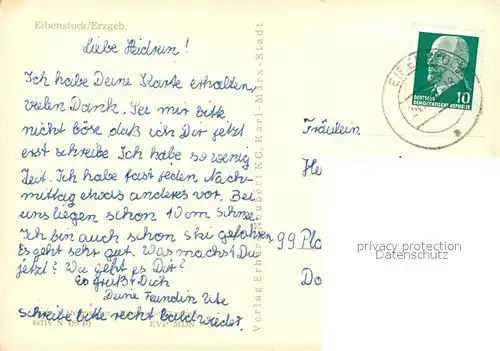 Eibenstock/Erzgeb.
Liebe Heidrun!
Ich habe Deine Karte erhalten,
vielen Dank. Sei mir bitte
nicht böse, daß ich Dir jetzt
erst schreibe. Ich habe so wenig
Zeit. Ich habe fast jeden Nach-
mittag etwas anderes vor. Bei
uns liegen schon 10 cm Schnee.
Ich bin auch schon Ski gefahren.
Es geht sehr gut. Was machst Du
jetzt? Wie geht es Dir?
Es grüßt Dich
Deine Freundin Ute
schreibe bitte recht bald wieder.
EVP MDN
Verlag Erhard Neubert KG, Karl-Marx-Stadt
10
DEUTSCHE
DEMOKRATISCHE REPUBLIK
Fräulein
He
99 Pla
Do
privacy protection
Datenschutz